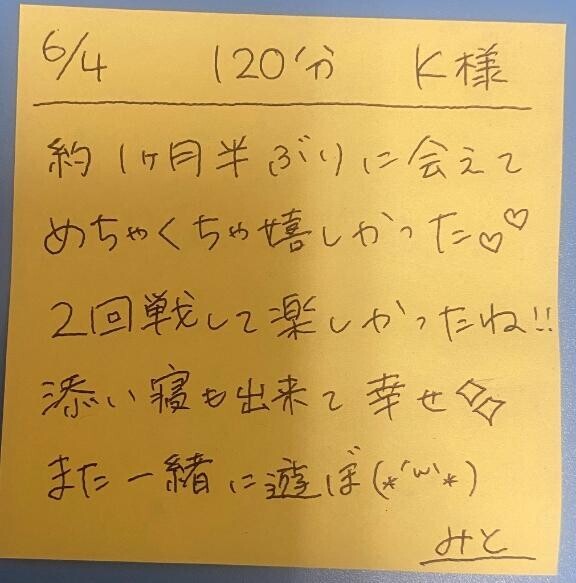 6/4 120分 K様
約1ヶ月半ぶりに会えて
めちゃくちゃ嬉しかった♡♡
2回戦して楽しかったね!!
添い寝も出来て幸せ◇◇
また一緒に遊ぼ(*´ω`*)
みと